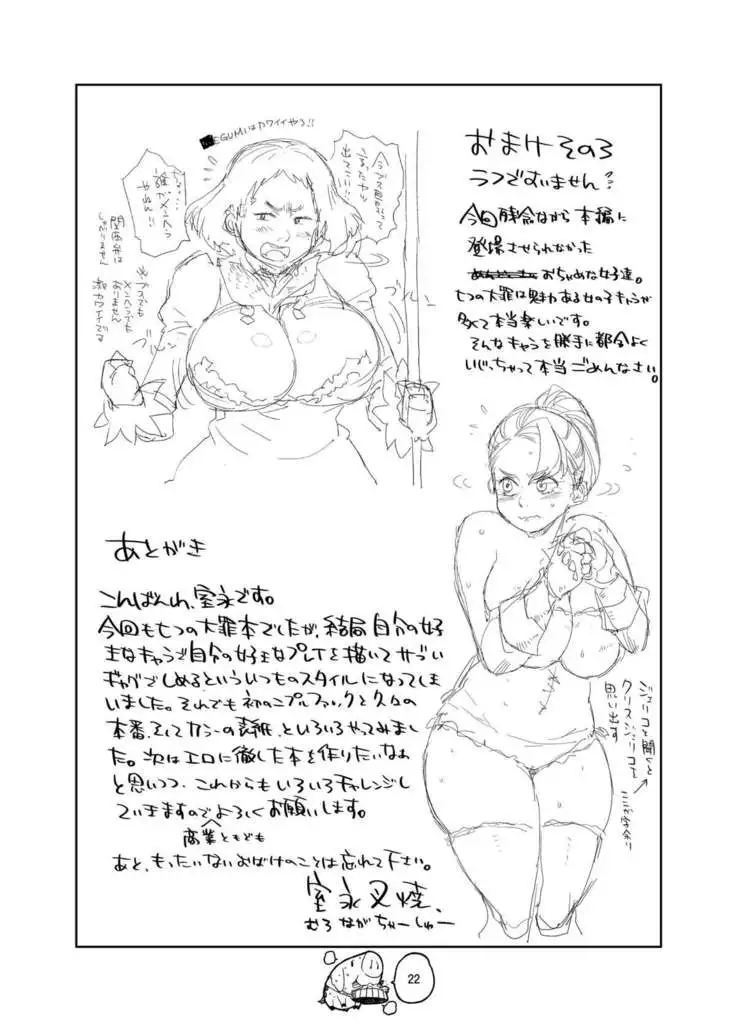 おまけその3
ラフですいません
今回残念ながら本編に
登場させられなかった
おちゃめな女子達。
七つの大罪は魅力ある女の子キャラが
多くて本当楽しいです。
そんなキャラを勝手に都合よく
いじっちゃって本当ごめんなさい。
EGUMIはカワイイやろ!!
誰がメンヘラやねん!!
あとがき
こんばんわ、室永です。
今回も七つの大罪本でしたが、結局自分の好
きなキャラで自分の好きなプレイを描いてサブい
ギャグでしめるといういつものスタイルになってしま
いました。それでも初のニプルファックと久々の
本番、そしてカラーの表紙、といろいろやってみまし
た。次はエロに徹した本を作りたいなぁ
と思いつつ、これからもいろいろチャレンジし
ていきますのでよろしくお願いします。
商業ともども
あと、もったいないおばけのことは忘れて下さい。
室永叉焼、
むろながちゃーしゅー
ジェリコと聞くと
クリス・ジェリコを
思い出す
22